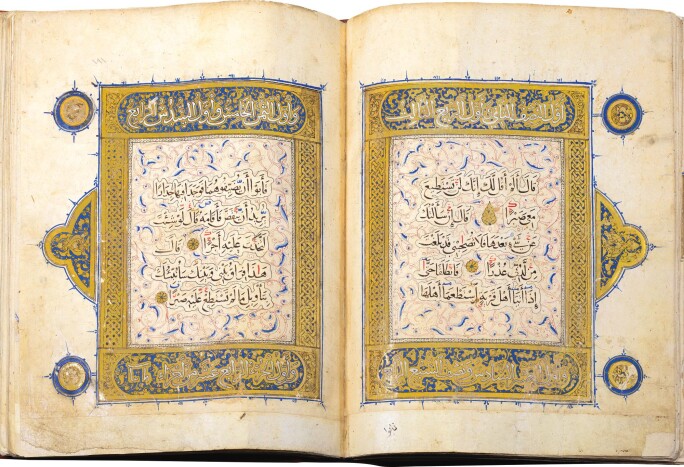 اول النصف الثاني واول الربع الثالث
قال الم اقل لك انك لن تستطيع
معي صبرا قال ان سالتك
عن شيء بعدها فلا تصاحبني قد بلغت
من لدني عذرا فانطلقا حتى
اذا اتيا اهل قرية استطعما اهلها
فابوا
واول الثمن الخامس واول السدس الرابع
فابوا ان يضيفوهما فوجدا فيها جدارا
يريد ان ينقض فاقامه قال لو شئت
لتخذت عليه اجرا قال
هذا فراق بيني وبينك سانبئك
بتاويل ما لم تستطع عليه صبرا